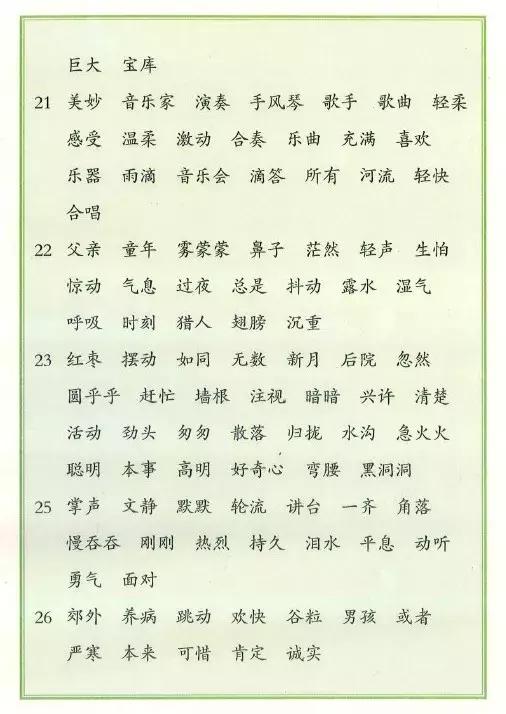 巨大 宝库
21 美妙 音乐家 演奏 手风琴 歌手 歌曲 轻柔
感受 温柔 激动 合奏 乐曲 充满 喜欢
乐器 雨滴 音乐会 滴答 所有 河流 轻快
合唱
22 父亲 童年 雾蒙蒙 鼻子 茫然 轻声 生怕
惊动 气息 过夜 总是 抖动 露水 湿气
呼吸 时刻 猎人 翅膀 沉重
23 红枣 摆动 如同 无数 新月 后院 忽然
圆乎乎 赶忙 墙根 注视 暗暗 兴许 清楚
活动 劲头 匆匆 散落 归拢 水沟 急火火
聪明 本事 高明 好奇心 弯腰 黑洞洞
25 掌声 文静 默默 轮流 讲台 一齐 角落
慢吞吞 刚刚 热烈 持久 泪水 平息 动听
勇气 面对
26 郊外 养病 跳动 欢快 谷粒 男孩 或者
严寒 本来 可惜 肯定 诚实